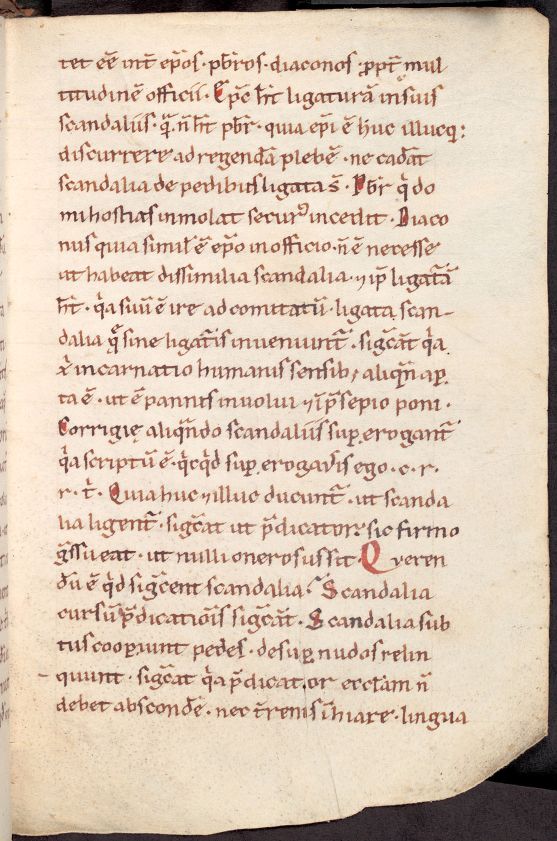 tet eē int̄ ep̄os · p̄bros · diaconos · ꝓpt̄ mul
titudinē officii · Ep̄c h̄t ligaturā in suis
scandaliis · q̄ n̄ h̄t pb̄r · quia ep̄i ē huc illucq;
discurrere ad regendā plebē · ne cadāt
scandalia de pedibus ligata s̄ · Pb̄r q̇ do
mi hostias inmolat secur᷒ incedit · Diaco
nus quia simul ē ep̄o in officio · n̄ ē necesse
ut habeat dissimilia scandalia · ⁊ ip̄ ligatā
h̄t · q̇a suū ē ire ad comitatū · ligata scan-
dalia q̄ sine ligat̄is inveniunt̄ · siḡcat q̇a
x̄i incarnatio humanis sensib; aliqn̄ ap̲
ta ē · ut ē pannis involui ⁊ ip̄sepio poni ·
Corrigię aliqn̄do scandaliis sup̲ erogant̄
q̇a scriptū ē · q̇cq̇d sup̲ erogav̄is ego · c · r ·
r · t̄ · Quia huc ⁊ illuc ducunt̄ · ut scanda
lia ligent̄ · siḡcat ut p̄dicator sic firmo
ḡssu eat · ut nulli onerosus sit · Qveren
dū ē q̇d siḡcent scandalia · Scandalia
cursū p̄dicatiōis siḡcat̄ · Scandalia sub
tus coop̲iunt pedes · desup̲ nudos relin
quunt · siḡcat q̇a p̄dicator eccl̄am n̄
debet abscondē · nec t̄renis īhiare · lingua